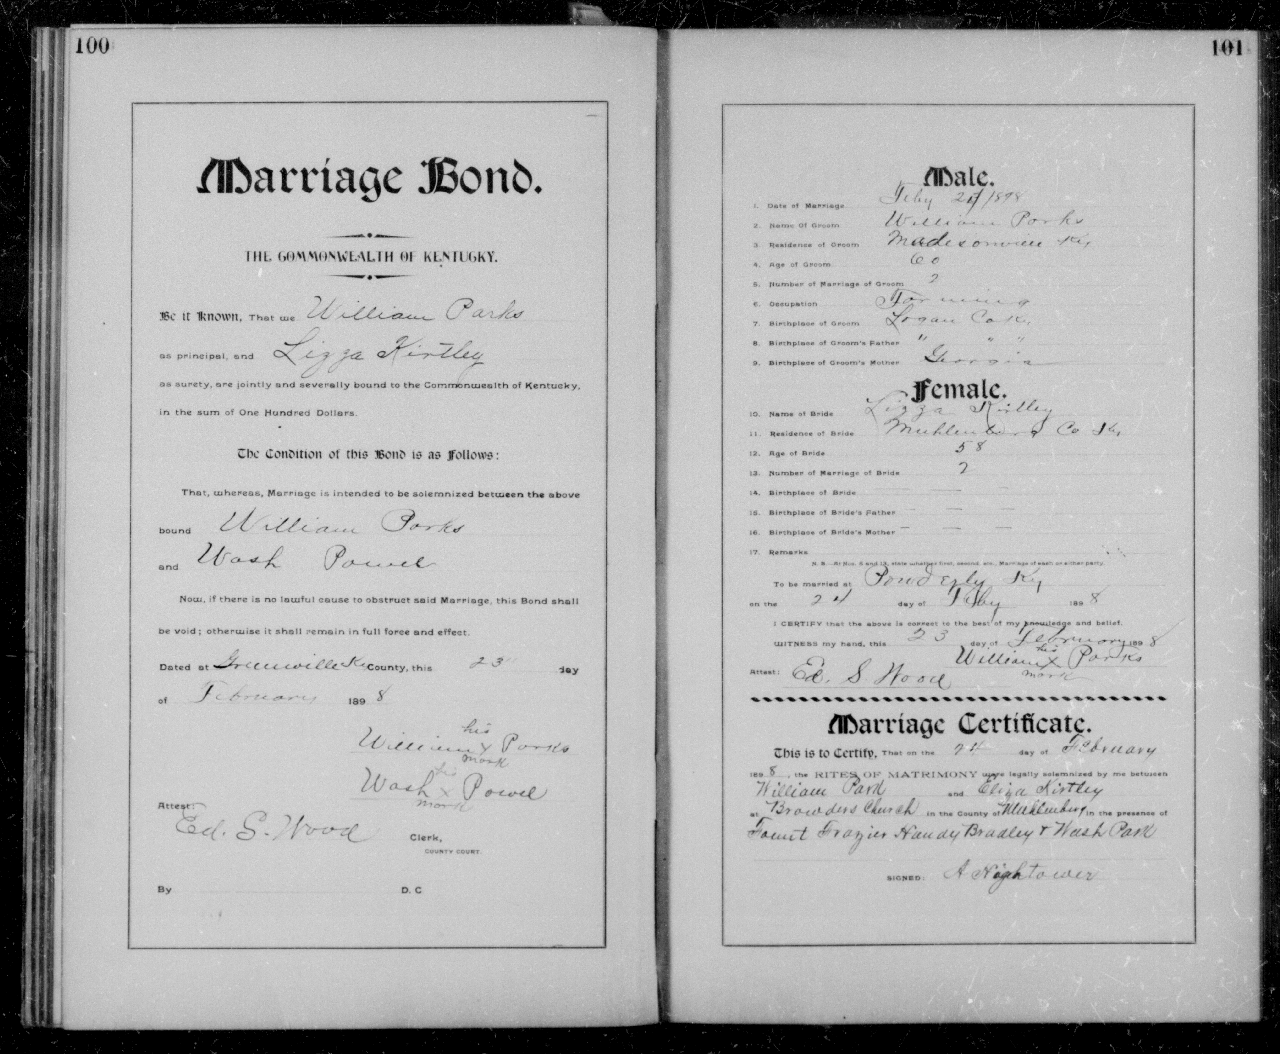 100
Marriage Bond.
THE COMMONWEALTH OF KENTUCKY.
Be it Known, That we William Parks
as principal, and Lizza Kirtley
as surety, are jointly and severally bound to the Commonwealth of Kentucky,
in the sum of One Hundred Dollars.
The Condition of this Bond is as Follows:
That, whereas, Marriage is intended to be solemnized between the above
bound William Parks
and Wash Powel
Now, if there is no lawful cause to obstruct said Marriage, this Bond shall
be void; otherwise it shall remain in full force and effect.
Dated at Greenville Ky County, this 23 day
of February 1898
his
William X Parks
mark
his
Wash X Powel
mark
Attest:
Ed. S. Wood Clerk,
COUNTY COURT.
By D. C
101
Male.
1. Date of Marriage Feby 24/1898
2. Name Of Groom William Parks
3. Residence of Groom Madisonville Ky
4. Age of Groom 60
5. Number of Marriage of Groom 2
6. Occupation Farming
7. Birthplace of Groom Logan Co Ky.
8. Birthplace of Groom's Father " " "
9. Birthplace of Groom's Mother Georgia
Female.
10. Name of Bride Lizza Kirtley
11. Residence of Bride Muhlenburg Co Ky
12. Age of Bride 58
13. Number of Marriage of Bride 2
14. Birthplace of Bride — — —
15. Birthplace of Bride's Father — — —
16. Birthplace of Bride's Mother — — —
17. Remarks
N. B.—At Nos. 5 and 13, state whether first, second, etc., Marriage of each or either party.
To be married at Powderly Ky
on the 24 day of Feby 1898
I CERTIFY that the above is correct to the best of my knowledge and belief.
WITNESS my hand, this 23 day of February 1898
his
William X Parks
mark
Attest: Ed. S. Wood
Marriage Certificate.
This is to Certify, That on the 24 day of February
1898, the RITES OF MATRIMONY were legally solemnized by me between
William Park and Eliza Kirtley
at Browders Church in the County of Muhlenberg in the presence of
Fount Frazier Handy Bradley & Wash Park
SIGNED: A Hightower